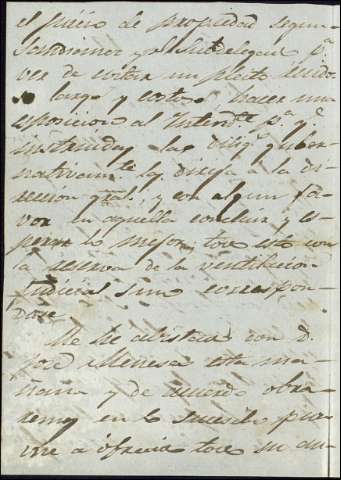 el juicio de propiedad segun
al Subdelegado pª
ver de evitar un pleito
largo y costoso hacer una
esposicion al Intend.te pª qe
instruidas las dilig.s guber
nativam.te la dirija a la di
reccion gral. y con algun fa
vor en aquella concluir y es
perar lo mejor, todo esto con
la reserva de la ventilacion
judicial si no correspon
diese
Me he avistado con D.
José Meneses esta ma
ñana y de acuerdo obra
remos en lo sucesivo pues
me a ofrecido todo su au